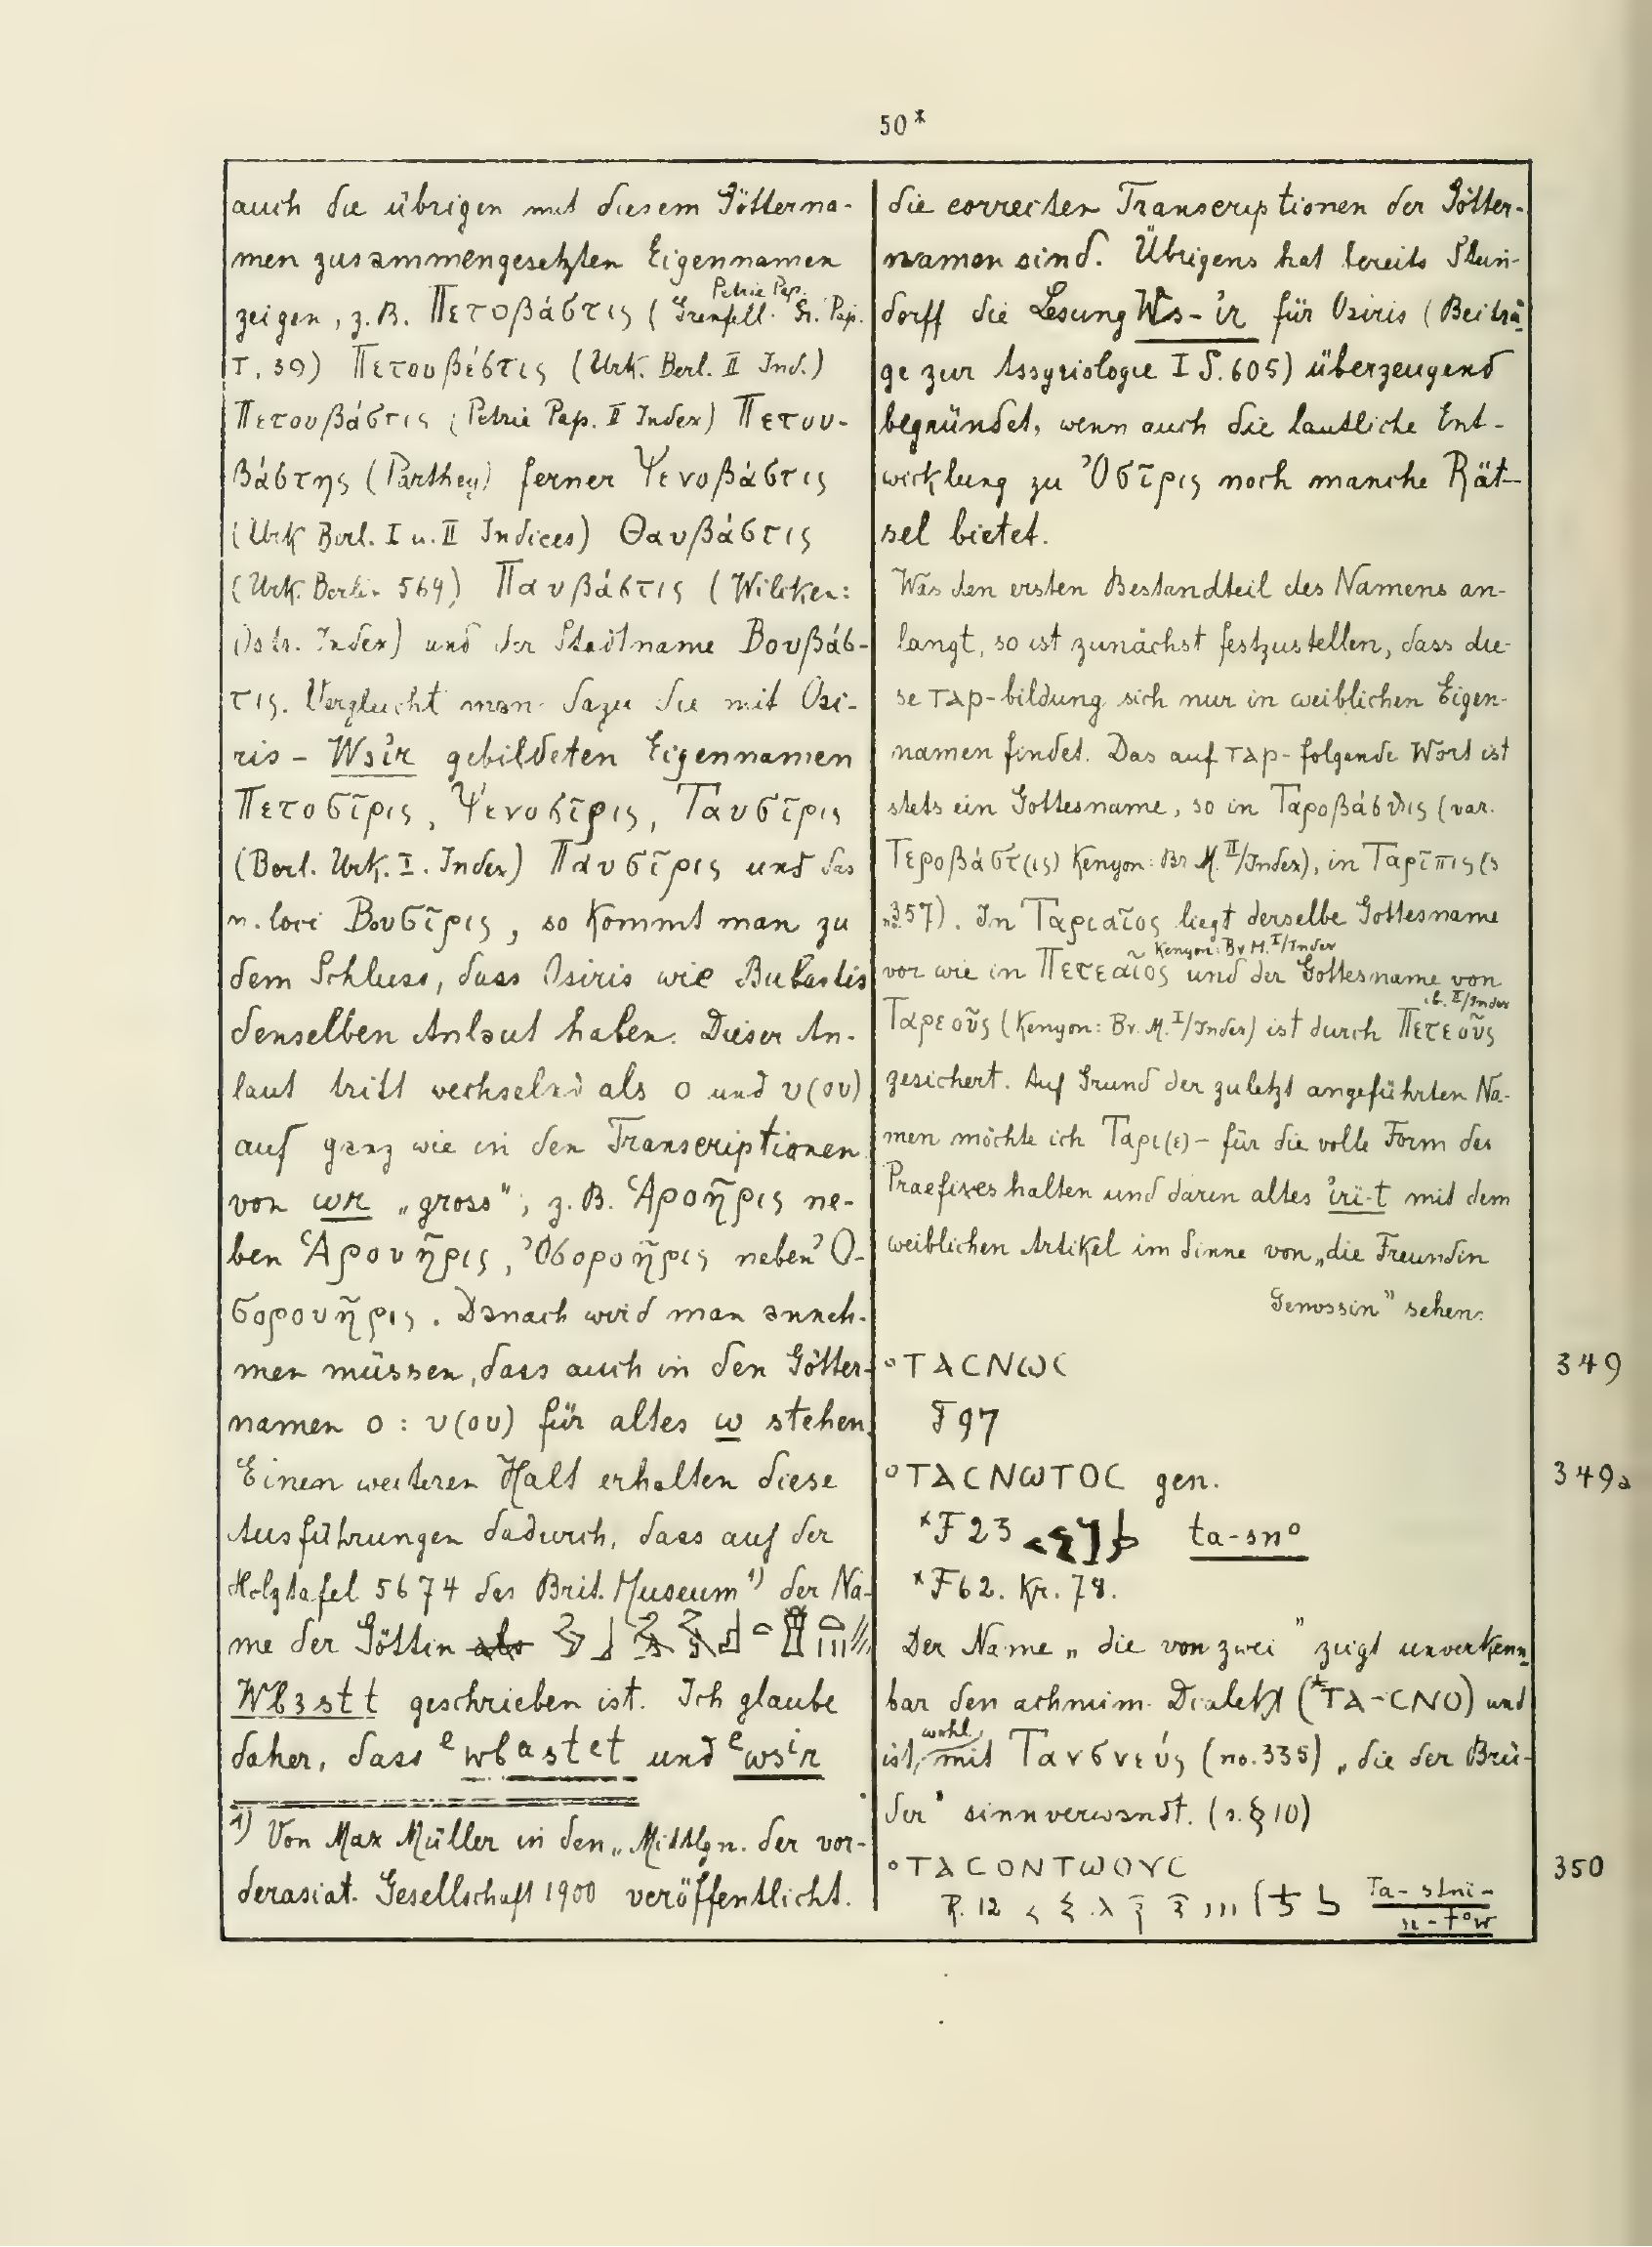 50*
auch die übrigen mit diesem Götterna-
men zusammengesetzten Eigennamen
Petrie Pap.
zeigen, z.B. Πετοβάστις (Grenfell. Gr. Pap.
I, 39) Πετουβέστις (Urk. Berl. II Ind.)
Πετουβάστις (Petrie Pap. II Index) Πετυυ-
βάστης (Parthey) ferner Ψενοβάστις
(Urk Berl. I u. II Indices) Θαυβάστις
(Urk. Berlin 564) Παυβάστις (Wilcken:
Ostr. Index) und der Stadtname Βουβάσ-
τις. Vergleicht man dazu die mit Osi-
ris – Wsỉr gebildeten Eigennamen
Πετοσῖρις, Ψενοσῖρις, Ταυσῖρις
(Berl. Urk. I. Index) Παυσῖρις und das
n. loci Βουσῖρις, so kommt man zu
dem Schluss, dass Osiris wie Bubastis
denselben Anlaut haben. Dieser An-
laut tritt wechselnd als ο und υ(ου)
auf ganz wie in den Transcriptionen
von wr „gross“, z.B. Ἁροῆρις ne-
ben Ἁρουῆρις, Ὀσοροῆρις neben Ὀ-
σορουῆρις. Danach wird man anneh-
men müssen, dass auch in den Götter-
namen ο : υ(ου) für altes w stehen.
Einen weiteren Halt erhalten diese
Ausführungen dadurch, dass auf der
Holztafel 5674 des Brit. Museum¹) der Na-
me der Göttin
Wb3stt geschrieben ist. Ich glaube
daher, dass ᵉwbastet und ᵉwsir
¹) Von Max Müller in den „Mittlgn. der vor-
derasiat. Gesellschaft 1900 veröffentlicht.
die correcten Transcriptionen der Götter-
namen sind. Übrigens hat bereits Stein-
dorff die Lesung Ws-ỉr für Osiris (Beiträ-
ge zur Assyriologie I S. 605) überzeugend
begründet, wenn auch die lautliche Ent-
wicklung zu Ὀσῖρις noch manche Rät-
sel bietet.
Was den ersten Bestandteil des Namens an-
langt, so ist zunächst festzustellen, dass die-
se ⲧⲁⲣ-bildung sich nur in weiblichen Eigen-
namen findet. Das auf ⲧⲁⲣ- folgende Wort ist
stets ein Gottesname, so in Ταροβάσθις (var.
Τεροβάστ(ις) Kenyon: Br M. II/Index), in Ταρῖπις (s
no. 357). In Ταριαῖος liegt derselbe Gottesname
Kenyon: Br M. I/Index
vor wie in Πετεαῖος und der Gottesname von
ib. II/Index
Ταρεοῦς (Kenyon: Br. M. I/Index) ist durch Πετεοῦς
gesichert. Auf Grund der zuletzt angeführten Na-
men möchte ich Ταρι(ε)- für die volle Form des
Praefixes halten und darin altes ỉrỉ-t mit dem
weiblichen Artikel im Sinne von „die Freundin
Genossin“ sehen.
°ⲦⲀⲤⲚⲰⲤ 349
F 97
°ⲦⲀⲤⲚⲰⲦⲞⲤ gen. 349a
*F 23 ta-sn°
*F 62. Kr. 78.
Der Name „die von zwei“ zeigt unverkenn-
bar den achmim. Dialekt (*ⲦⲀ-ⲤⲚⲞ) und
wohl
ist, mit Τανσνεύς (no. 335) „die der Brü-
der“ sinnverwandt. (s. § 10)
°ⲦⲀⲤⲞⲚⲦⲰⲞⲨⲤ 350
R. 12